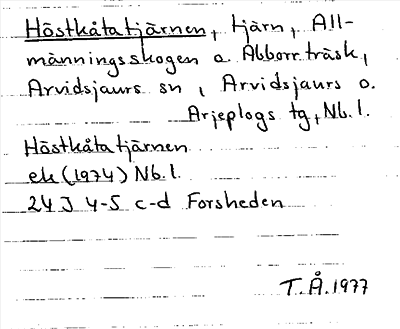 Höstkåtatjärnen, tjärn, All-
männingsskogen o. Abborrträsk,
Arvidsjaurs sn, Arvidsjaurs o.
Arjeplogs tg, Nb. l.
Höstkåtatjärnen
ek (1974) Nb. l.
24 J 4-5 c-d Forsheden
T. Å. 1977